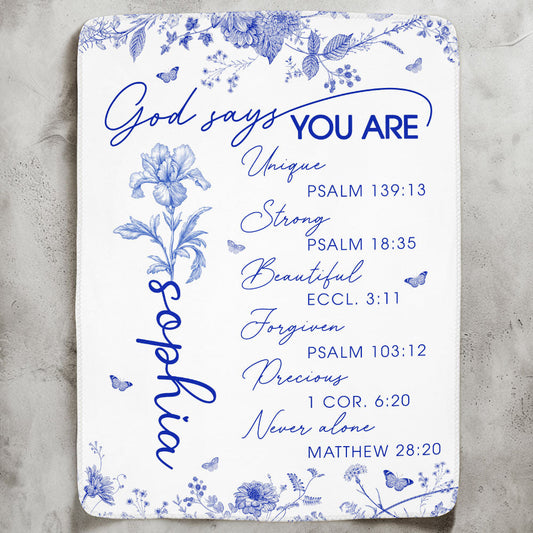 God says YOU ARE
Unique
PSALM 139:13
Strong
PSALM 18:35
Beautiful
ECCL. 3:11
Forgiven
PSALM 103:12
Precious
1 COR. 6:20
Never alone
MATTHEW 28:20
sophia